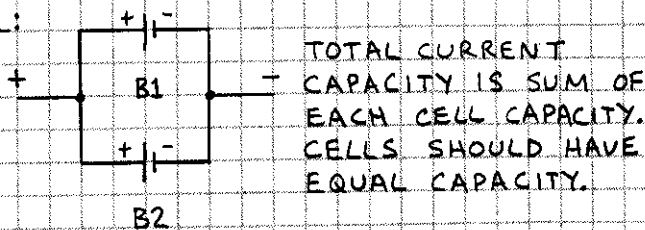 + -
B1
+ -
+ -
B2
TOTAL CURRENT
CAPACITY IS SUM OF
EACH CELL CAPACITY.
CELLS SHOULD HAVE
EQUAL CAPACITY.